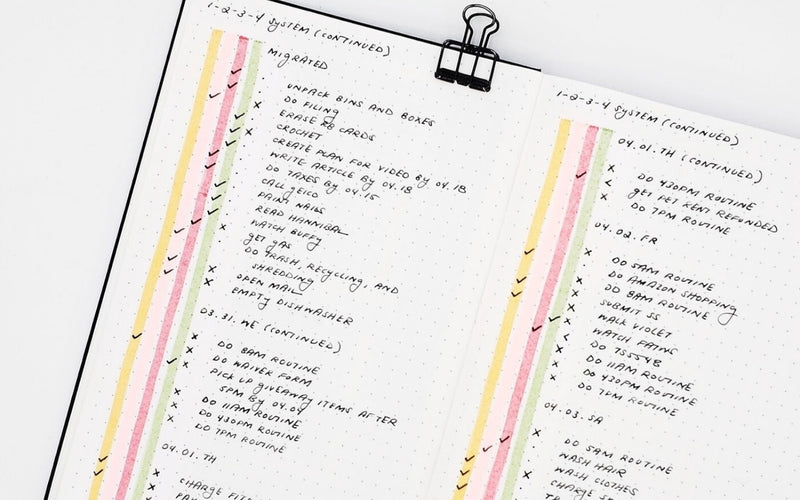 1-2-3-4 SYSTEM (CONTINUED)
MIGRATED
UNPACK BINS AND BOXES
DO FILING
ERASE RB CARDS
CROCHET
CREATE PLAN FOR VIDEO BY 04.18
WRITE ARTICLE BY 04.18
DO TAXES BY 04.15
CALL GEICO
PAINT NAILS
READ HANNIBAL
WATCH BUFFY
GET GAS
DO TRASH, RECYCLING, AND
SHREDDING
OPEN MAIL
EMPTY DISHWASHER
03.31.WE (CONTINUED)
DO 8AM ROUTINE
DO WAIVER FORM
PICK UP GIVEAWAY ITEMS AFTER
5PM BY 04.04
DO 11AM ROUTINE
DO 430PM ROUTINE
DO 7PM ROUTINE
04.01.TH
CHARGE
1-2-3-4 SYSTEM (CONTINUED)
04.01.TH (CONTINUED)
DO 430PM ROUTINE
GET PET RENT REFUNDED
DO 7PM ROUTINE
04.02.FR
DO 5AM ROUTINE
DO AMAZON SHOPPING
DO 8AM ROUTINE
SUBMIT SS
WALK VIOLET
WATCH FATWS
DO TSSS4B
DO 11AM ROUTINE
DO 430PM ROUTINE
DO 7PM ROUTINE
04.03.SA
DO 5AM ROUTINE
WASH HAIR
WASH CLOTHES
CHARGE